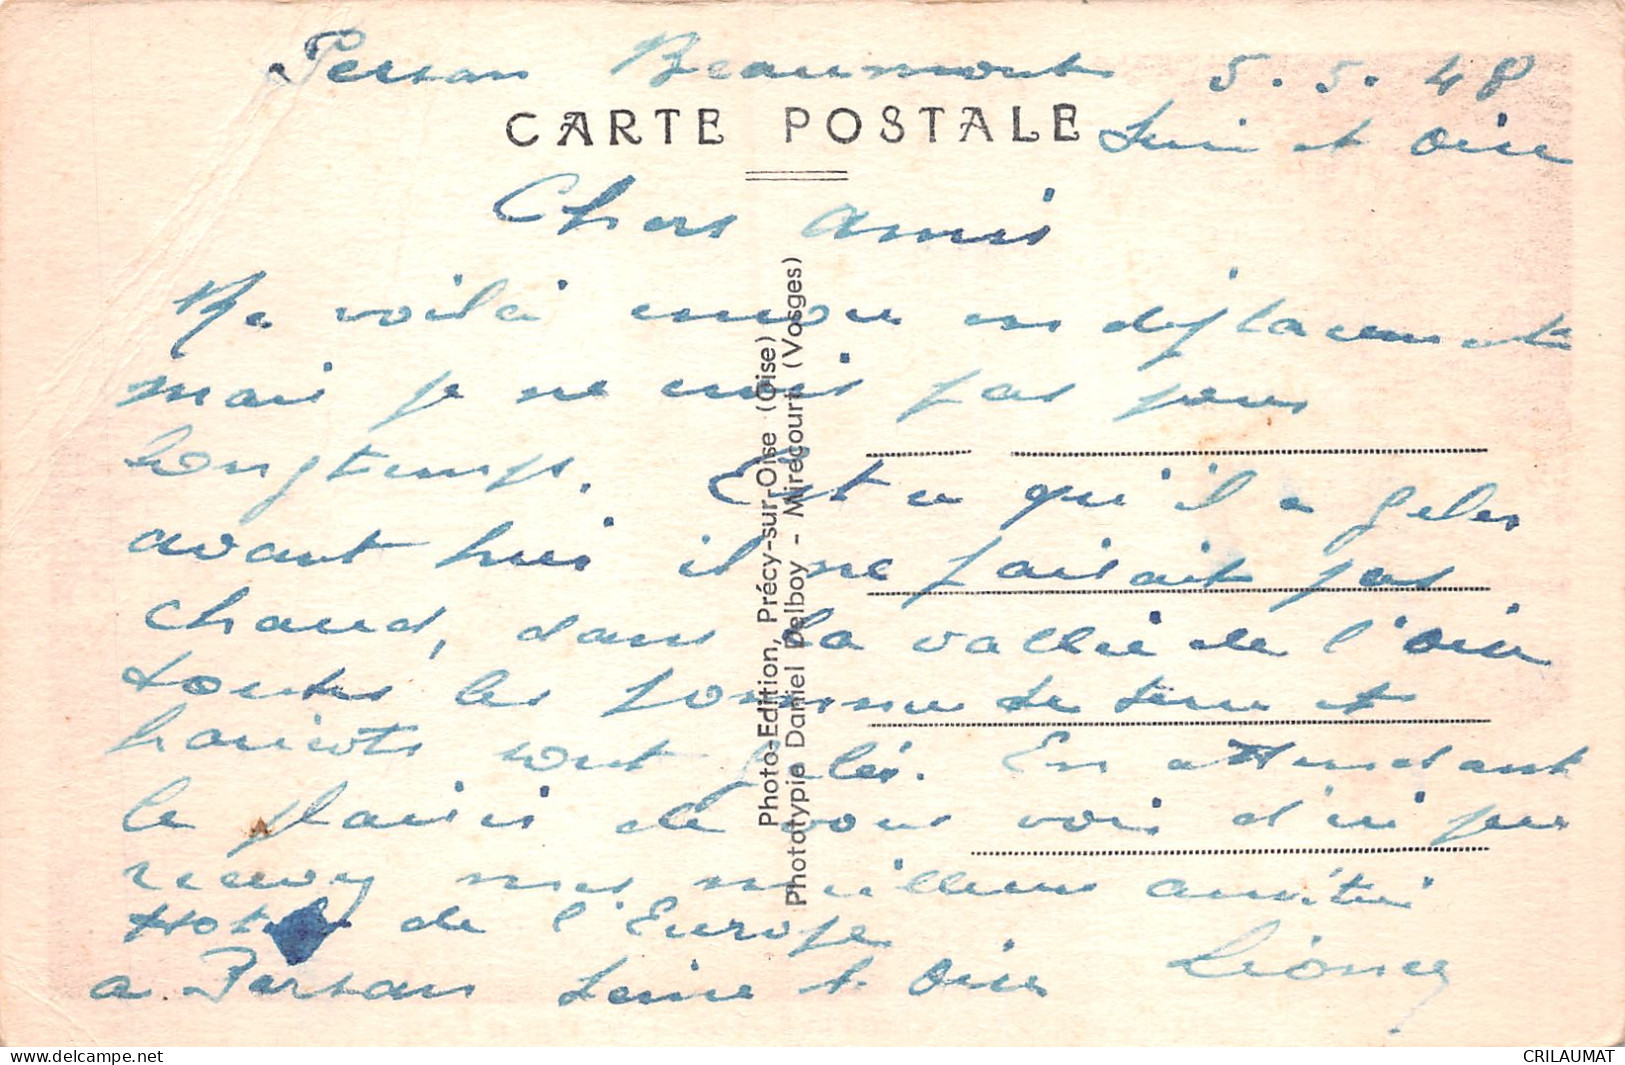 Persan Beaumont 5.5.48
CARTE POSTALE
Seine et Oise
Chers Amis
Me voilà encore en déplacement
mais je ne crois pas pour
longtemps. Est ce qu'il a geler
avant hier il ne faisait pas
chaud, dans la vallée de l'Oise
toutes les pomme de terre et
haricots sont gelés. En attendant
le plaisir de vous voir d'ici peu
recevez mes meilleures amitiés
Hotel de l'Europe
a Persan Seine et Oise
Photo-Edition, Précy-sur-Oise (Oise)
Phototypie Daniel Delboy - Mirecourt (Vosges)
CRILAUMAT